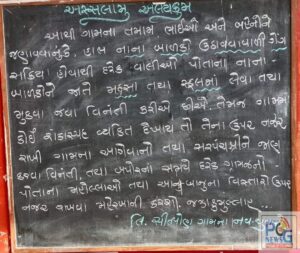 અસ્સલામુ અલયકુમ
આથી ગામના તમામ ભાઈઓ અને બહેનોને
જણાવવાનું કે, હાલ નાના બાળકો ઉઠાવવાવાળી ગેંગ
સક્રિય હોવાથી દરેક વાલીઓ પોતાના નાના
બાળકોને જાતે મદ્રસા તથા સ્કૂલમાં લેવા તથા
મુકવા જવા વિનંતી કરીએ છીએ. તેમજ ગામમાં
કોઈ શંકાસ્પદ વ્યક્તિ દેખાય તો તેના ઉપર નજર
રાખી ગામના આગેવાનો તથા સરપંચશ્રીને જાણ
કરવા વિનંતી, તથા બપોરના સમયે દરેક ગામજનો
પોતાના મહોલ્લાઓ તથા આજુબાજુના વિસ્તારો ઉપર
નજર રાખવા મહેરબાની કરશો. જઝાકુમુલ્લાહ...
લિ. સીતપોણ ગામના નવ
PG
NEWS